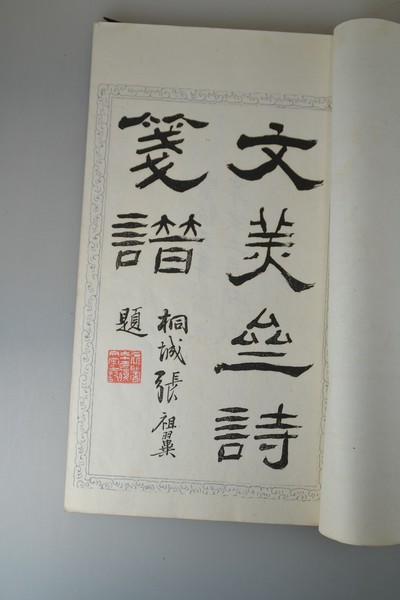 文美亝詩
箋譜
桐城張祖翼
題